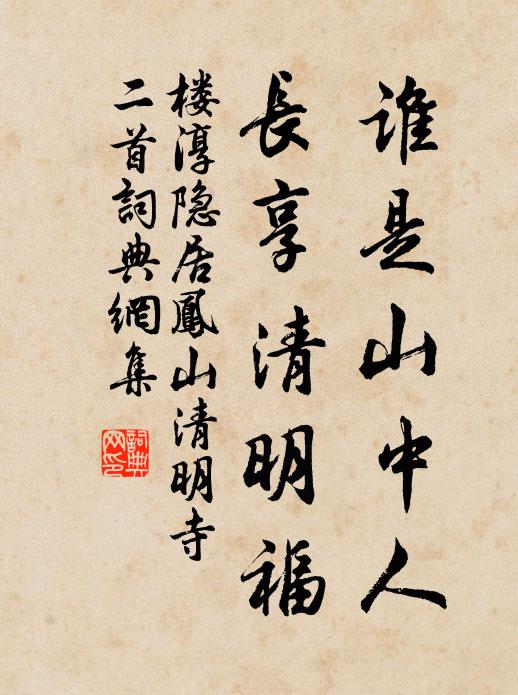 谁是山中人
長享清明福
楼淳隐居鳳山清明寺
二首詞典網集
詞典网印